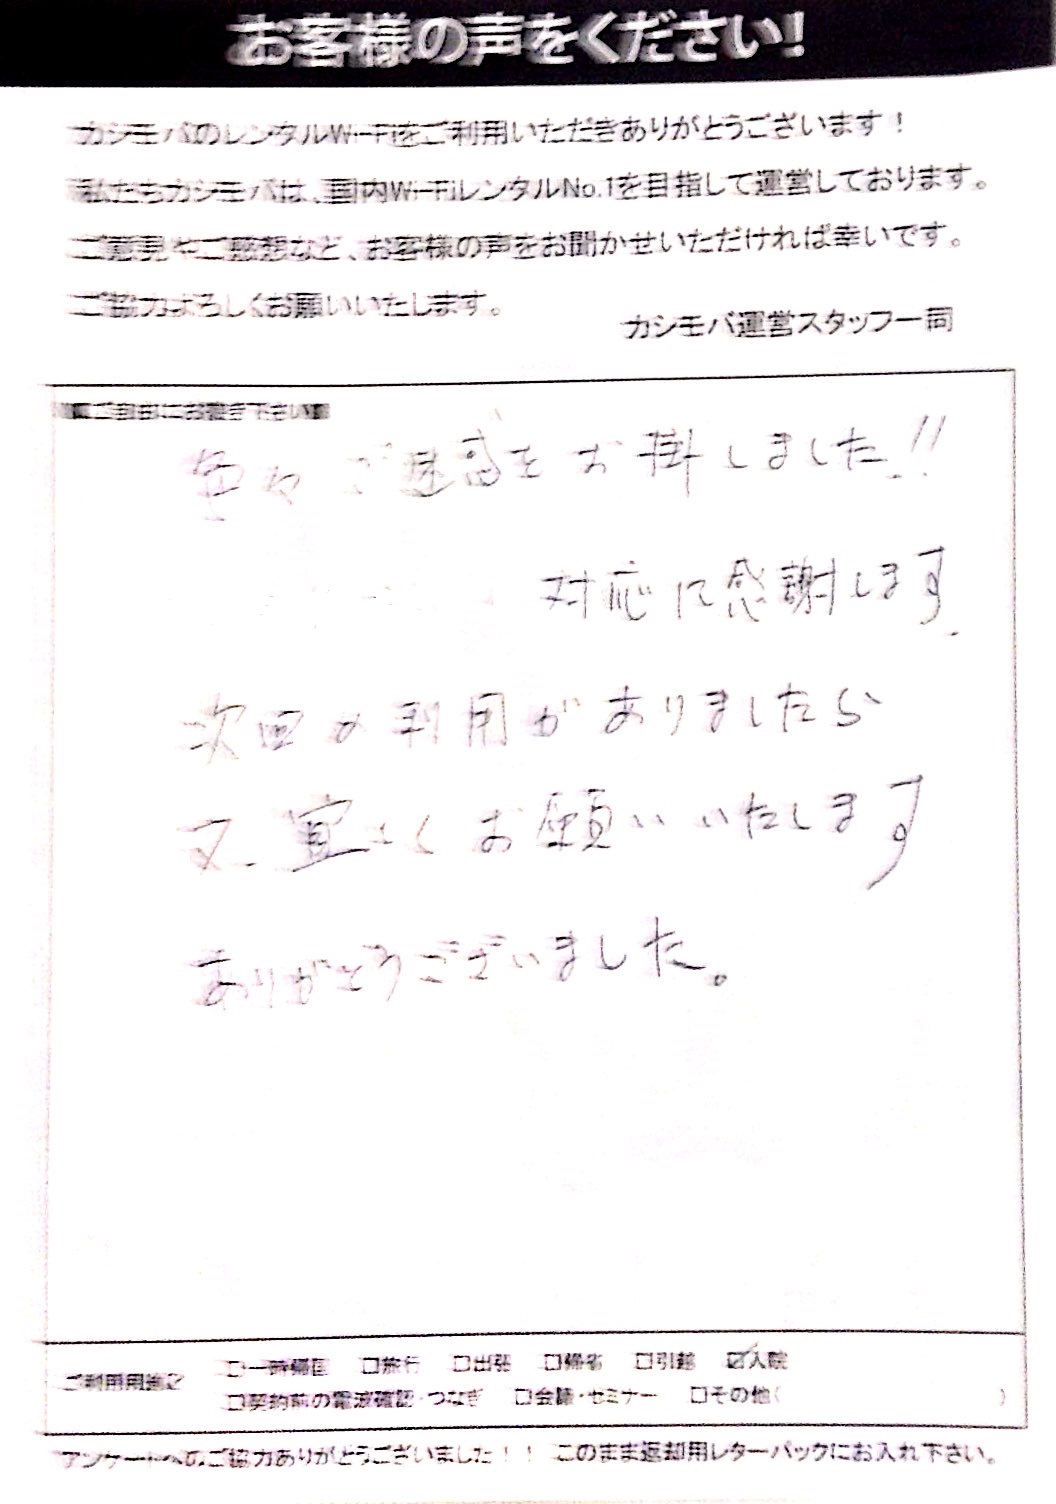 お客様の声をください!
カシモバのレンタルWi-Fiをご利用いただきありがとうございます!
私たちカシモバは、国内Wi-FiレンタルNo.1を目指して運営しております。
ご意見やご感想など、お客様の声をお聞かせいただければ幸いです。
ご協力よろしくお願いいたします。
カシモバ運営スタッフ一同
【ご自由にお書き下さい】
色々ご迷惑をお掛しました!!
対応に感謝します.
次回の利用がありましたら
又、宜しくお願いいたします
ありがとうございました。
ご利用用途
□一時帰国 □旅行 □出張 □帰省 □引越 ☑入院
□契約前の電波確認・つなぎ □会議・セミナー □その他( )
アンケートへのご協力ありがとうございました!! このまま返却用レターパックにお入れ下さい。